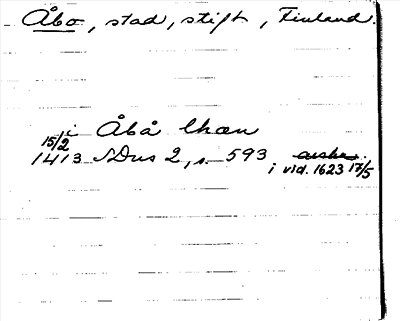 Åbo, stad, stift, Finland.
i Åbå lhæn
15/2
1413 SDns 2, s 593 avskr.
i vid. 1623 17/5